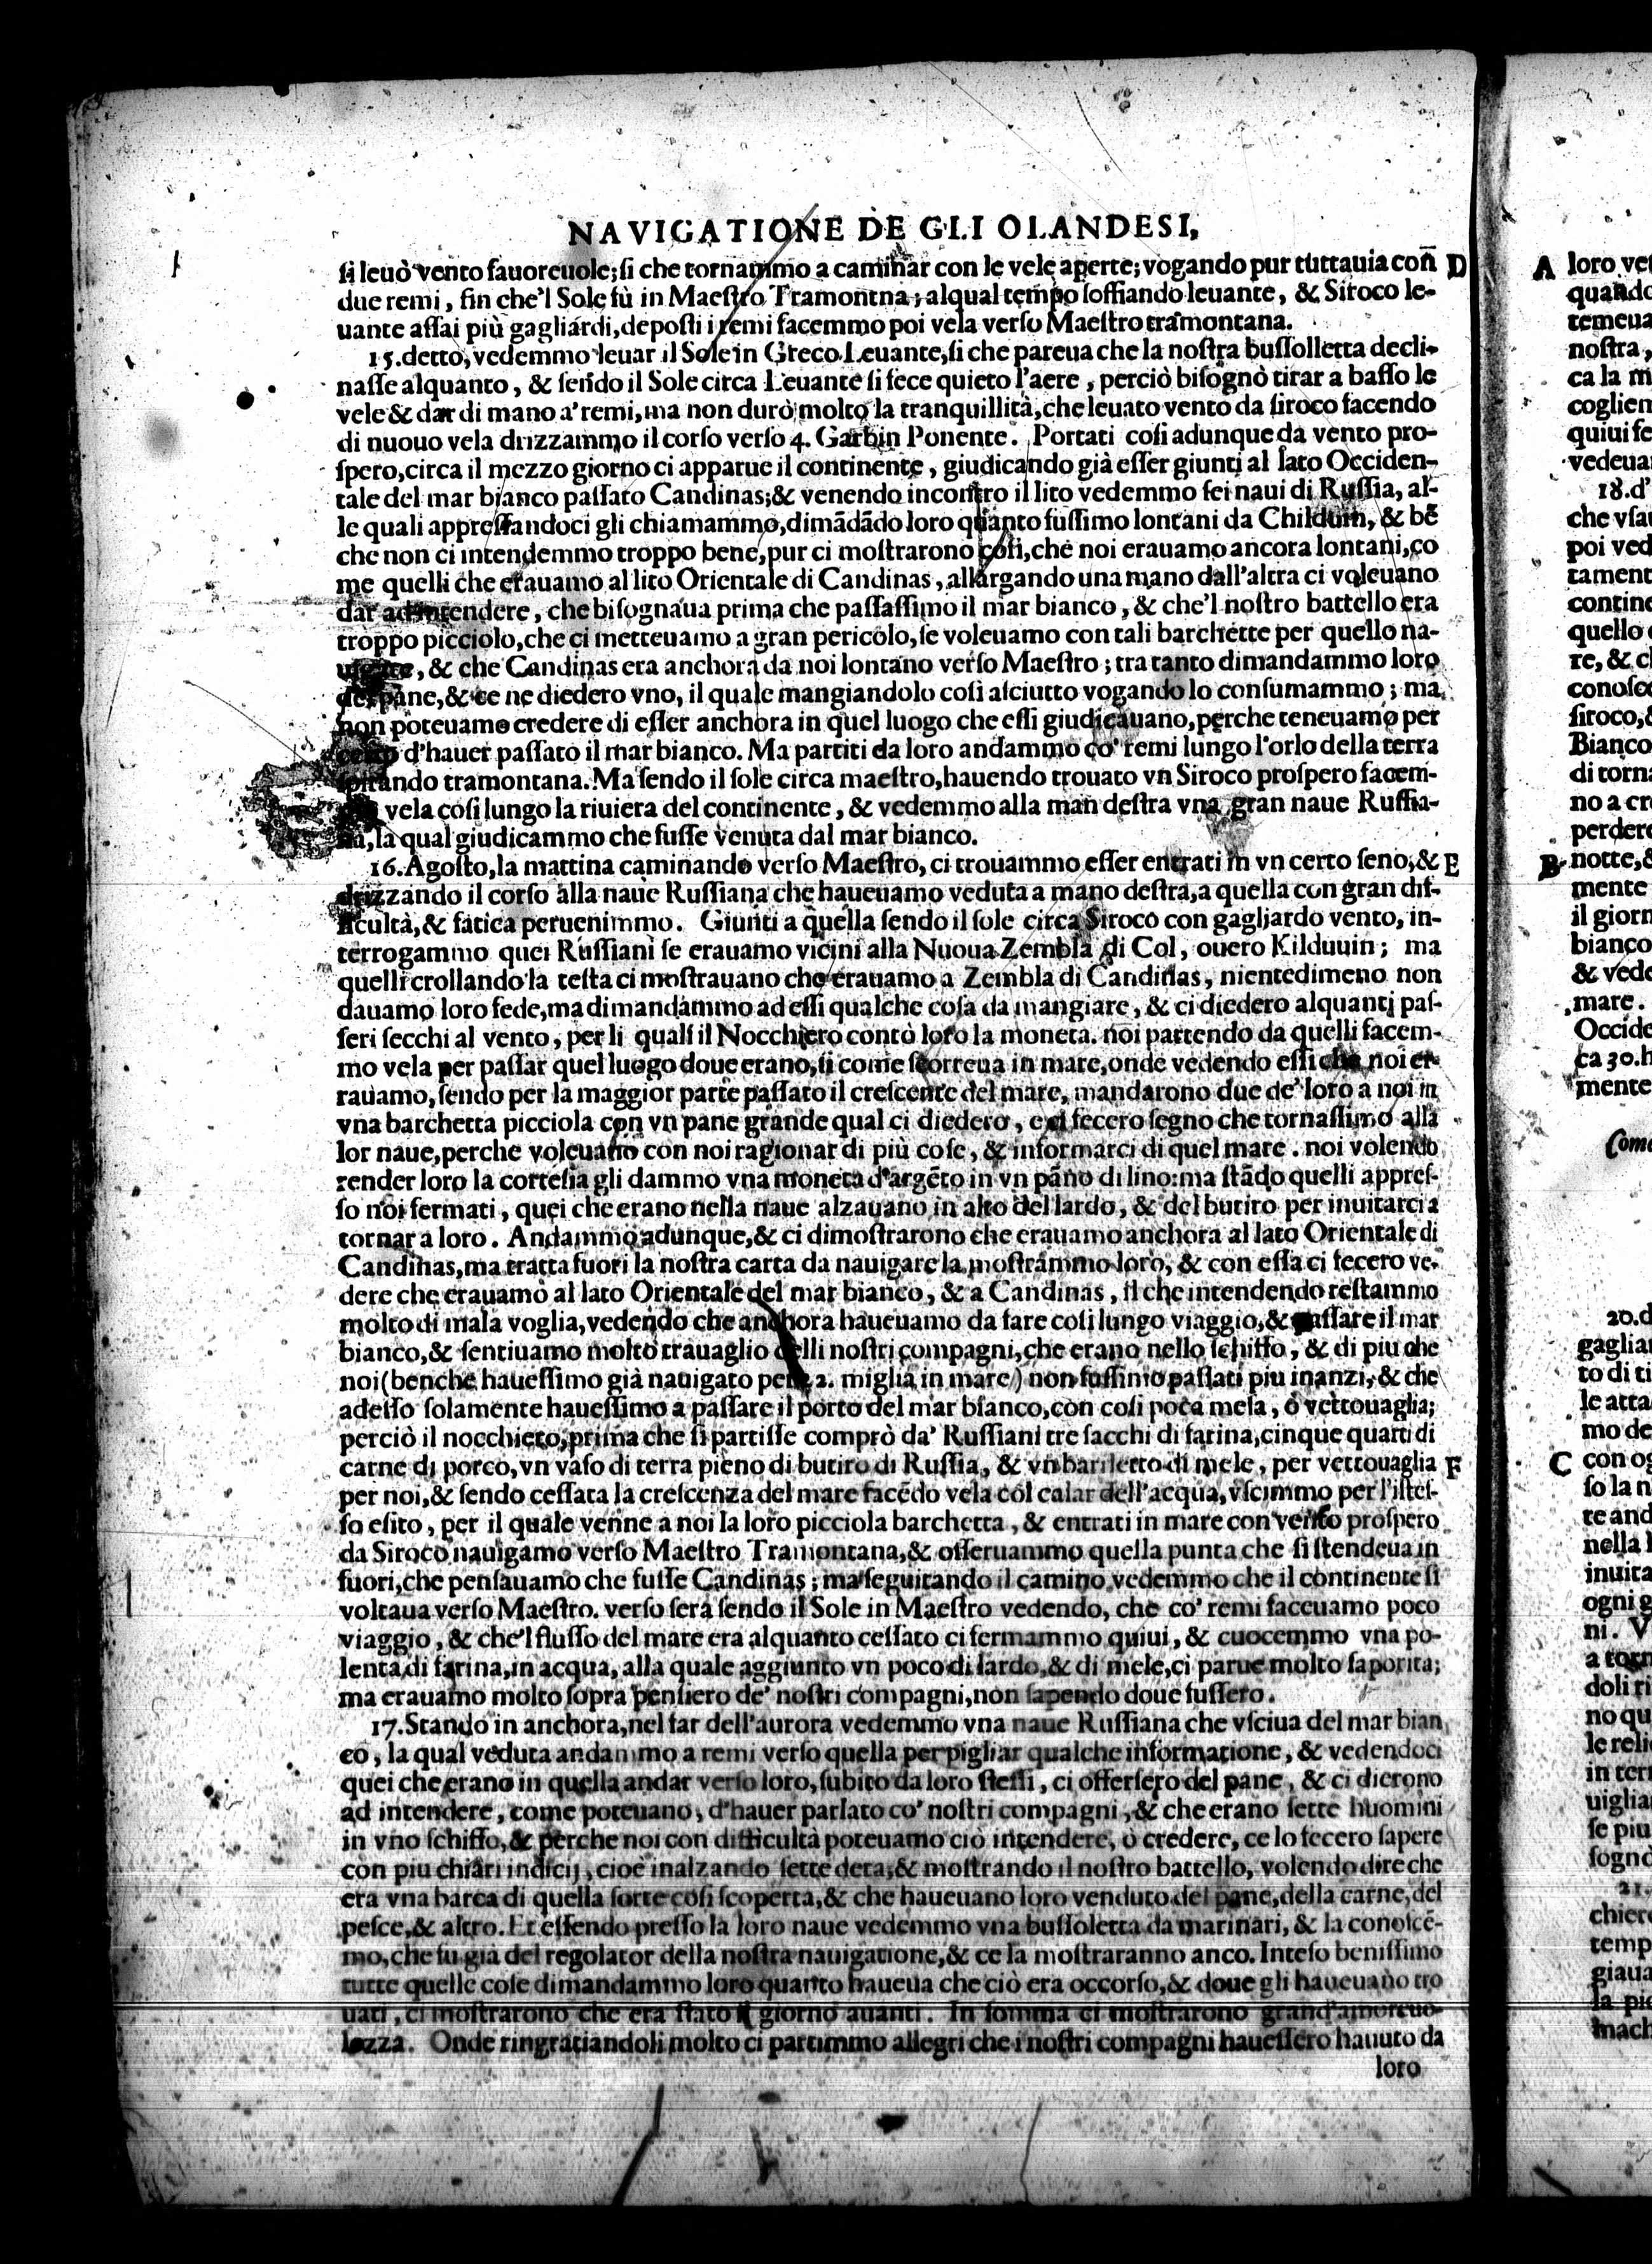 NAVIGATIONE DE GLI OLANDESI,
ſi leuò vento fauoreuole; ſi che tornammo a caminar con le vele aperte; vogando pur tuttauia con̄ D
due remi, fin che'l Sole fù in Maeſtro Tramontna; alqual tempo ſoffiando leuante, & Siroco le-
uante aſſai più gagliardi, depoſti i remi facemmo poi vela verſo Maeſtro tramontana.
15. detto, vedemmo leuar il Sole in Greco Leuante, ſi che pareua che la noſtra buſſolletta decli-
naſſe alquanto, & ſendo il Sole circa Leuante ſi fece quieto l'aere, perciò biſognò tirar a baſſo le
vele & dar di mano a' remi, ma non durò molto la tranquillità, che leuato vento da ſiroco facendo
di nuouo vela drizzammo il corſo verſo 4. Garbin Ponente. Portati coſi adunque da vento pro-
ſpero, circa il mezzo giorno ci apparue il continente, giudicando già eſſer giunti al lato Occiden-
tale del mar bianco paſſato Candinas; & venendo incontro il lito vedemmo ſei naui di Ruſſia, al-
le quali appreſſandoci gli chiamammo, dimādādo loro quanto fuſſimo lontani da Childuin, & bē
che non ci intendemmo troppo bene, pur ci moſtrarono coſi, che noi erauamo ancora lontani, co
me quelli che erauamo al lito Orientale di Candinas, allargando una mano dall'altra ci voleuano
dar ad intendere, che biſognaua prima che paſſaſſimo il mar bianco, & che'l noſtro battello era
troppo picciolo, che ci metteuamo a gran pericolo, ſe voleuamo con tali barchette per quello na-
uigare, & che Candinas era anchora da noi lontano verſo Maeſtro; tra tanto dimandammo loro
del pane, & ce ne diedero vno, il quale mangiandolo coſi aſciutto vogando lo conſumammo; ma
non poteuamo credere di eſſer anchora in quel luogo che eſſi giudicauano, perche teneuamo per
certo d'hauer paſſato il mar bianco. Ma partiti da loro andammo co' remi lungo l'orlo della terra
ſpirando tramontana. Ma ſendo il ſole circa maeſtro, hauendo trouato vn Siroco proſpero facem-
vela coſi lungo la riuiera del continente, & vedemmo alla man deſtra vna gran naue Ruſſia-
na, la qual giudicammo che fuſſe venuta dal mar bianco.
16. Agoſto, la mattina caminando verſo Maeſtro, ci trouammo eſſer entrati in vn certo ſeno, & E
drizzando il corſo alla naue Ruſſiana che haueuamo veduta a mano deſtra, a quella con gran dif-
ficultà, & fatica peruenimmo. Giunti a quella ſendo il ſole circa Siroco con gagliardo vento, in-
terrogammo quei Ruſſiani ſe erauamo vicini alla Nuoua Zembla di Col, ouero Kilduuin; ma
quelli crollando la teſta ci moſtrauano che erauamo a Zembla di Candinas, nientedimeno non
dauamo loro fede, ma dimandammo ad eſſi qualche coſa da mangiare, & ci diedero alquanti paſ-
ſeri ſecchi al vento, per li quali il Nocchiero contò loro la moneta. noi partendo da quelli facem-
mo vela per paſſar quel luogo doue erano, ſi come ſcorreua in mare, onde vedendo eſſi che noi er-
rauamo, ſendo per la maggior parte paſſato il creſcente del mare, mandarono due de' loro a noi in
vna barchetta picciola con vn pane grande qual ci diedero, e ci fecero ſegno che tornaſſimo alla
lor naue, perche voleuano con noi ragionar di più coſe, & informarci di quel mare. noi volendo
render loro la corteſia gli dammo vna moneta d'argēto in vn pāno di lino: ma ſtādo quelli appreſ-
ſo noi fermati, quei che erano nella naue alzauano in alto del lardo, & del butiro per inuitarci a
tornar a loro. Andammo adunque, & ci dimoſtrarono che erauamo anchora al lato Orientale di
Candinas, ma tratta fuori la noſtra carta da nauigare la moſtrammo loro, & con eſſa ci fecero ve-
dere che erauamo al lato Orientale del mar bianco, & a Candinas, il che intendendo reſtammo
molto di mala voglia, vedendo che anchora haueuamo da fare coſi lungo viaggio, & paſſare il mar
bianco, & ſentiuamo molto trauaglio delli noſtri compagni, che erano nello ſchiffo, & di piu che
noi (benche haueſſimo già nauigato per 2. miglia in mare) non fuſſimo paſſati piu inanzi, & che
adeſſo ſolamente haueſſimo a paſſare il porto del mar bianco, con coſi poca meſa, ò vettouaglia;
perciò il nocchiero, prima che ſi partiſſe comprò da' Ruſſiani tre ſacchi di farina, cinque quarti di
carne di porco, vn vaſo di terra pieno di butiro di Ruſſia, & vn bariletto di mele, per vettouaglia F
per noi, & ſendo ceſſata la creſcenza del mare facēdo vela col calar dell'acqua, vſcimmo per l'iſteſ-
ſo eſito, per il quale venne a noi la loro picciola barchetta, & entrati in mare con vento proſpero
da Siroco nauigamo verſo Maeſtro Tramontana, & oſſeruammo quella punta che ſi ſtendeua in
fuori, che penſauamo che fuſſe Candinas; ma ſeguitando il camino vedemmo che il continente ſi
voltaua verſo Maeſtro. verſo ſera ſendo il Sole in Maeſtro vedendo, che co' remi faceuamo poco
viaggio, & che'l fluſſo del mare era alquanto ceſſato ci fermammo quiui, & cuocemmo vna po-
lenta di farina, in acqua, alla quale aggiunto vn poco di lardo, & di mele, ci parue molto ſaporita;
ma erauamo molto ſopra penſiero de' noſtri compagni, non ſapendo doue fuſſero.
17. Stando in anchora, nel far dell'aurora vedemmo vna naue Ruſſiana che vſciua del mar bian
co, la qual veduta andammo a remi verſo quella per pigliar qualche informatione, & vedendoci
quei che erano in quella andar verſo loro, ſubito da loro ſteſſi, ci offerſero del pane, & ci dierono
ad intendere, come poteuano, d'hauer parlato co' noſtri compagni, & che erano ſette huomini
in vno ſchiffo, & perche noi con difficultà poteuamo ciò intendere, o credere, ce lo fecero ſapere
con piu chiari indicij, cioè inalzando ſette deta, & moſtrando il noſtro battello, volendo dire che
era vna barca di quella ſorte coſi ſcoperta, & che haueuano loro venduto del pane, della carne, del
peſce, & altro. Et eſſendo preſſo la loro naue vedemmo vna buſſoletta da marinari, & la conoſcē-
mo, che fu già del regolator della noſtra nauigatione, & ce la moſtraranno anco. Inteſo beniſſimo
tutte quelle coſe dimandammo loro quanto haueua che ciò era occorſo, & doue gli haueuano tro
uati, ci moſtrarono che era ſtato il giorno auanti. In ſomma ci moſtrarono grand'amoreuo-
lezza. Onde ringratiandoli molto ci partimmo allegri che i noſtri compagni haueſſero hauuto da
loro
A loro
B notte,
mente
il giorn
bianco
& vede
mare.
Occide
ca 30.
mente
C con